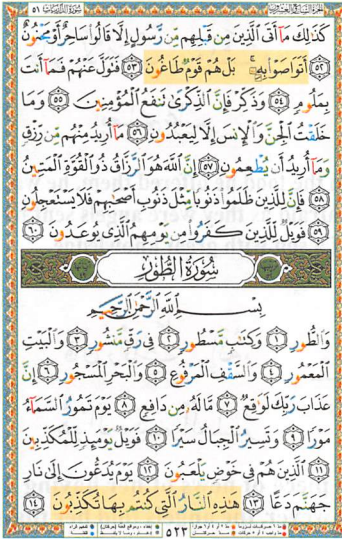 سُورَةُ الذَّارِيَاتِ ٥١
كَذَٰلِكَ مَآ أَتَى ٱلَّذِينَ مِن قَبۡلِهِم مِّن رَّسُولٍ إِلَّا قَالُواْ سَاحِرٌ أَوۡ مَجۡنُونٌ
٥٢ أَتَوَاصَوۡاْ بِهِۦۚ بَلۡ هُمۡ قَوۡمٞ طَاغُونَ ٥٣ فَتَوَلَّ عَنۡهُمۡ فَمَآ أَنتَ
بِمَلُومٖ ٥٤ وَذَكِّرۡ فَإِنَّ ٱلذِّكۡرَىٰ تَنفَعُ ٱلۡمُؤۡمِنِينَ ٥٥ وَمَا
خَلَقۡتُ ٱلۡجِنَّ وَٱلۡإِنسَ إِلَّا لِيَعۡبُدُونِ ٥٦ مَآ أُرِيدُ مِنۡهُم مِّن رِّزۡقٖ
وَمَآ أُرِيدُ أَن يُطۡعِمُونِ ٥٧ إِنَّ ٱللَّهَ هُوَ ٱلرَّزَّاقُ ذُو ٱلۡقُوَّةِ ٱلۡمَتِينُ
٥٨ فَإِنَّ لِلَّذِينَ ظَلَمُواْ ذَنُوبٗا مِّثۡلَ ذَنُوبِ أَصۡحَٰبِهِمۡ فَلَا يَسۡتَعۡجِلُونِ
٥٩ فَوَيۡلٞ لِّلَّذِينَ كَفَرُواْ مِن يَوۡمِهِمُ ٱلَّذِي يُوعَدُونَ ٦٠
سُورَةُ الطُّورِ
بِسۡمِ ٱللَّهِ ٱلرَّحۡمَٰنِ ٱلرَّحِيمِ
وَٱلطُّورِ ١ وَكِتَٰبٖ مَّسۡطُورٖ ٢ فِي رَقّٖ مَّنشُورٖ ٣ وَٱلۡبَيۡتِ
ٱلۡمَعۡمُورِ ٤ وَٱلسَّقۡفِ ٱلۡمَرۡفُوعِ ٥ وَٱلۡبَحۡرِ ٱلۡمَسۡجُورِ ٦ إِنَّ
عَذَابَ رَبِّكَ لَوَٰقِعٞ ٧ مَّا لَهُۥ مِن دَافِعٖ ٨ يَوۡمَ تَمُورُ ٱلسَّمَآءُ
مَوۡرٗا ٩ وَتَسِيرُ ٱلۡجِبَالُ سَيۡرٗا ١٠ فَوَيۡلٞ يَوۡمَئِذٖ لِّلۡمُكَذِّبِينَ
١١ ٱلَّذِينَ هُمۡ فِي خَوۡضٖ يَلۡعَبُونَ ١٢ يَوۡمَ يُدَعُّونَ إِلَىٰ نَارِ
جَهَنَّمَ دَعًّا ١٣ هَٰذِهِ ٱلنَّارُ ٱلَّتِي كُنتُم بِهَا تُكَذِّبُونَ ١٤
٥٢٣